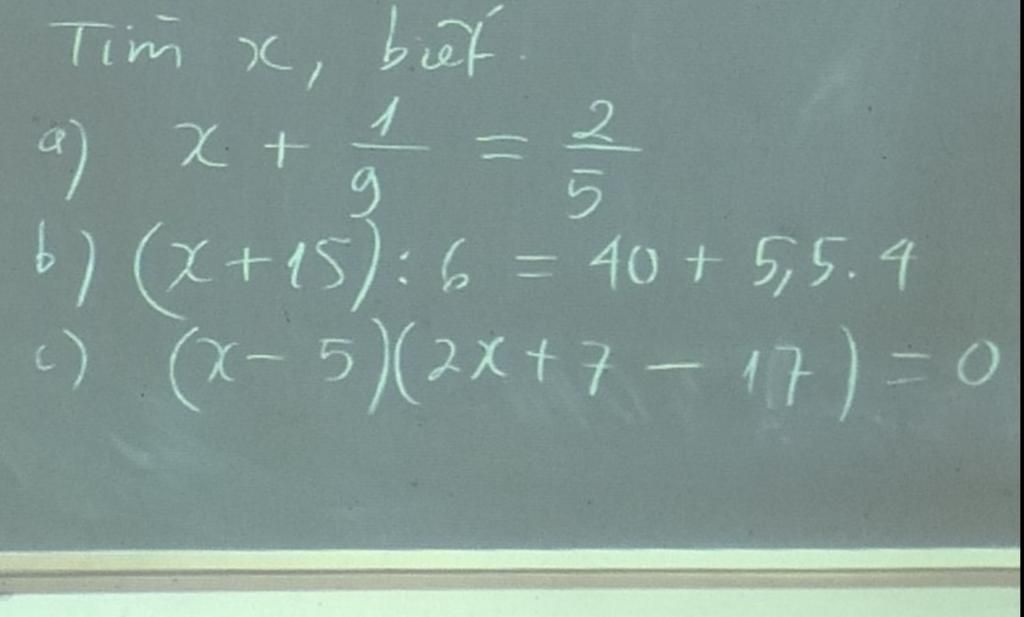 Tìm x, biết.
a) x + 1/9 = 2/5
b) (x+15):6 = 40 + 5,5.4
c) (x-5)(2x+7-17)=0